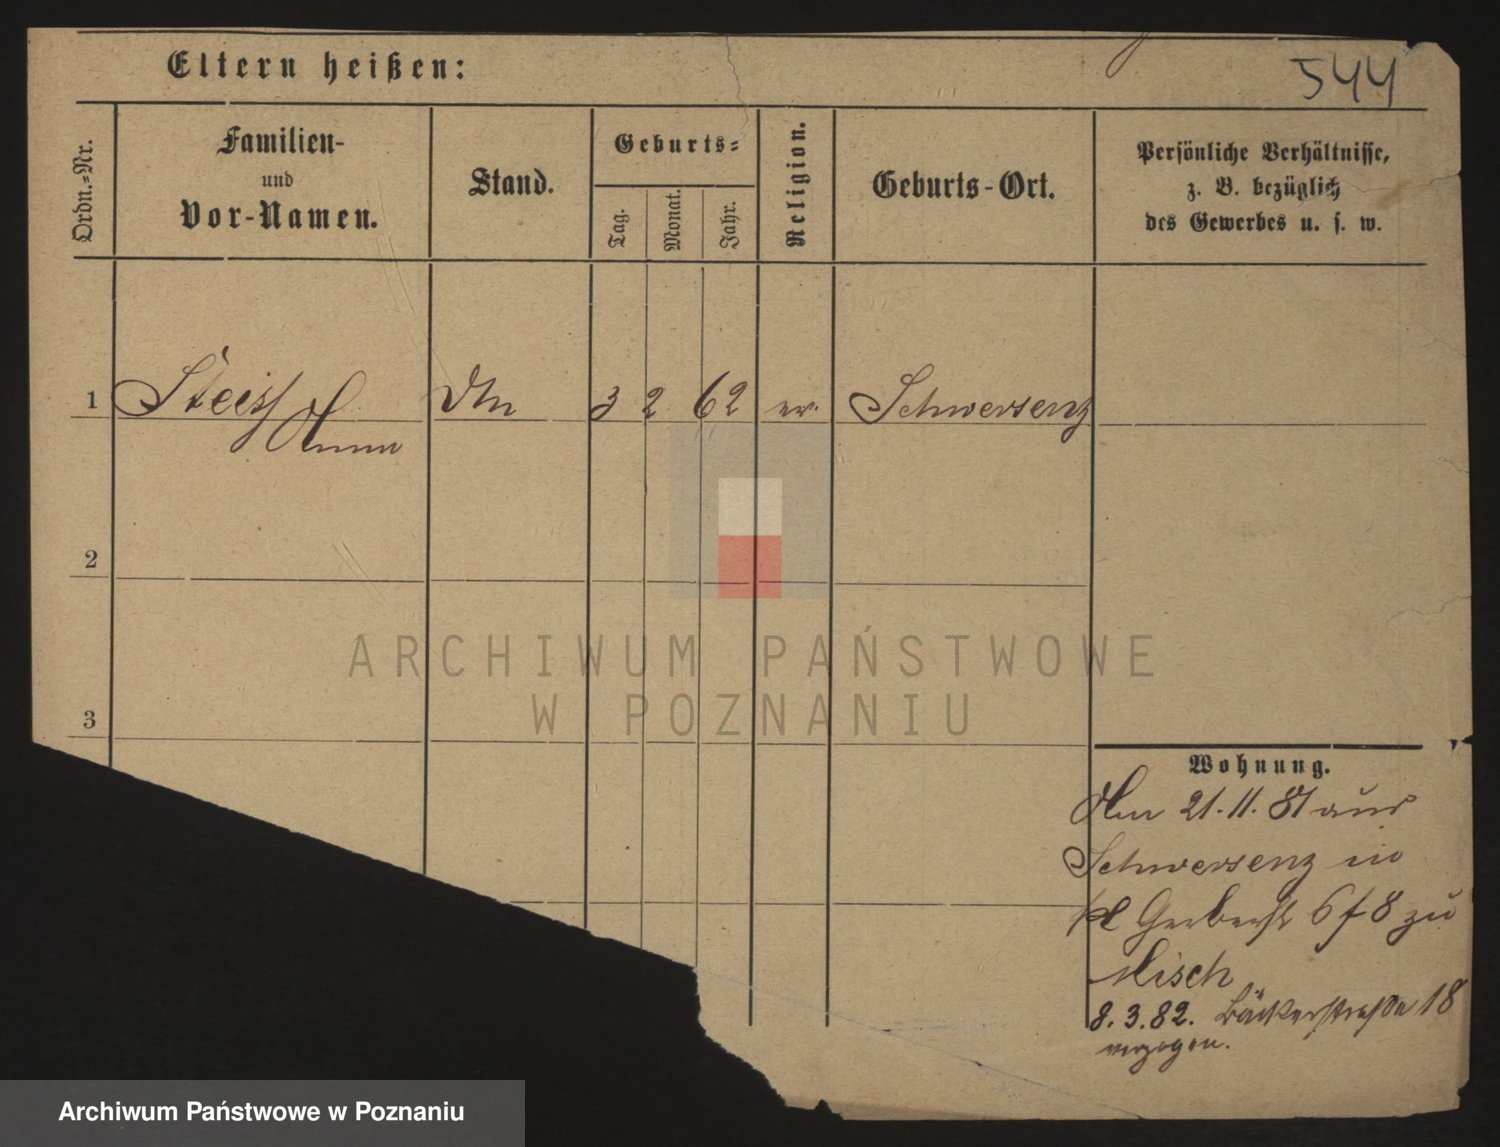 544
Eltern heißen:
Ordn.=Nr.
Familien-
und
Vor-Namen.
Stand.
Geburts=
Tag.
Monat.
Jahr.
Religion.
Geburts-Ort.
Persönliche Verhältnisse,
z. B. bezüglich
des Gewerbes u. s. w.
1
Steiss 3 2 62 ev. Schwersenz
Anna
2
3
ARCHIWUM PAŃSTWOWE
W POZNANIU
Wohnung.
Am 21.11.81 aus
Schwersenz in
kl Gerberst 6/8 zu
Misch
8.3.82. Bäckerstraße 18
verzogen.
Archiwum Państwowe w Poznaniu